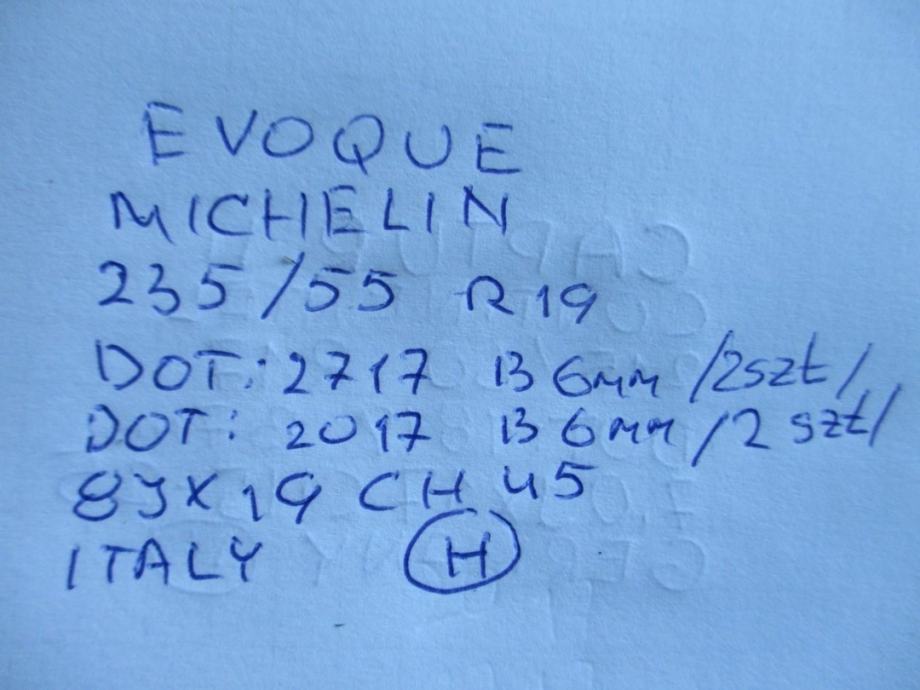 EVOQUE
MICHELIN
235/55 R19
DOT: 2717 B 6mm /2szt/
DOT: 2017 B 6mm /2szt/
8JX19 CH 45
ITALY H